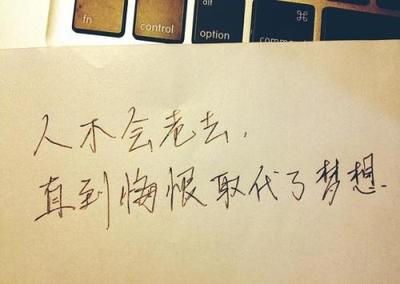 alt
⌘
fn
control
option
人不会老去，
直到悔恨取代了梦想.